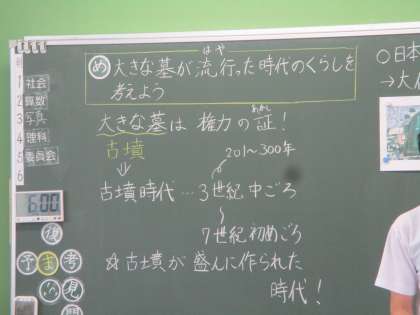 め 大きな墓が流行った時代のくらしを
はや
考えよう
大きな墓は権力の証!
あかし
古墳
201〜300年
古墳時代…3世紀中ごろ
7世紀初めごろ
☆古墳が盛んに作られた
時代!
1 社会
2 算数
3 写真
4 理科
5 委員会
6
6:00
予
ま
考
見
○日本
→大